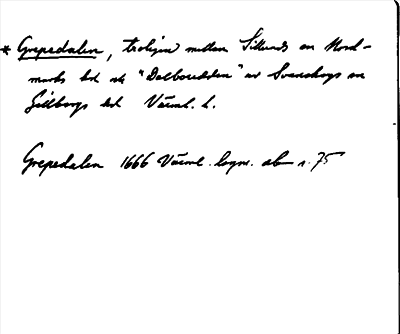 * Grepedalen, troligen mellan Sillerud av Nord-
marks hd och "Dalboredden" av Svanskogs av
Gillbergs hd Värml. l.
Grepedalen 1666 Värml. lagm. ab n. 75